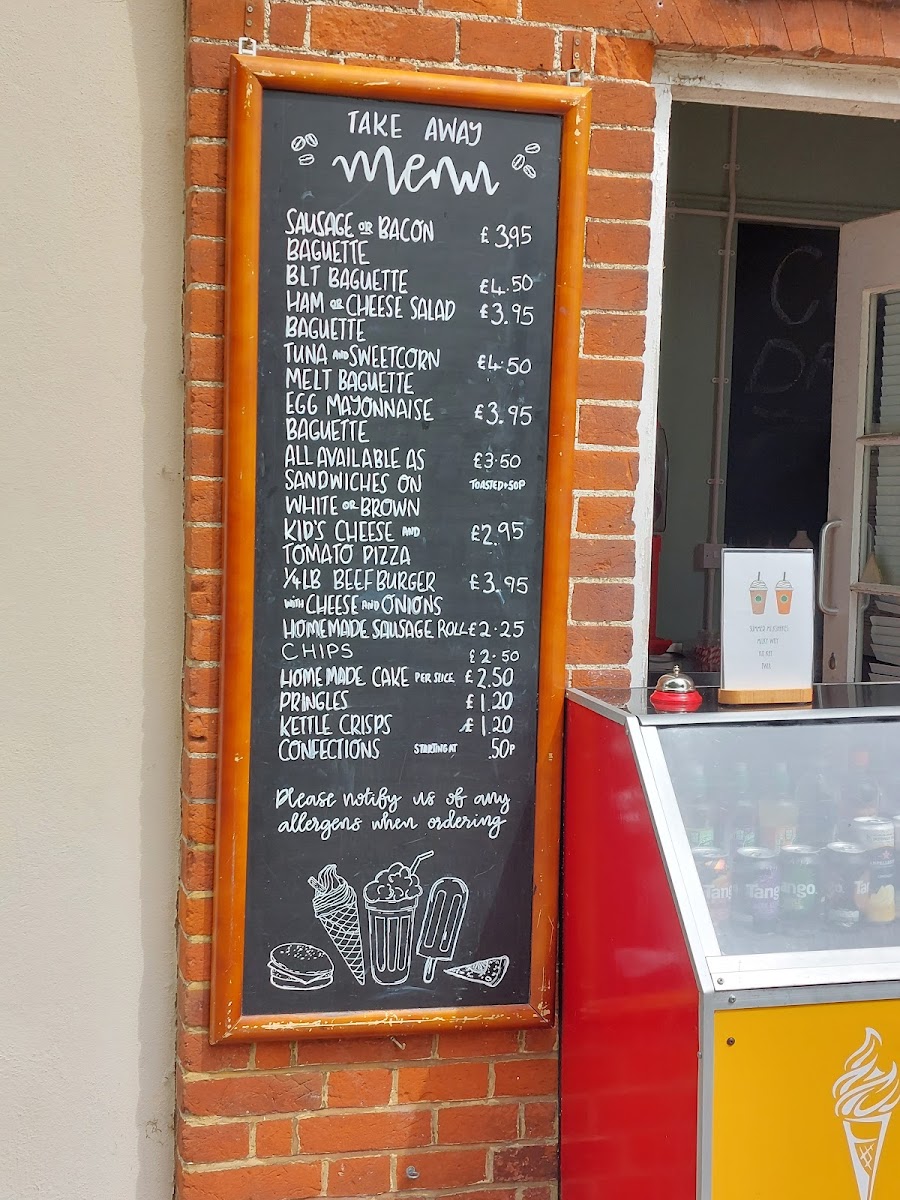 TAKE AWAY
menu
SAUSAGE OR BACON £3.95
BAGUETTE
BLT BAGUETTE £4.50
HAM OR CHEESE SALAD £3.95
BAGUETTE
TUNA AND SWEETCORN £4.50
MELT BAGUETTE
EGG MAYONNAISE £3.95
BAGUETTE
ALL AVAILABLE AS £3.50
SANDWICHES ON TOASTED+50P
WHITE OR BROWN
KID'S CHEESE AND £2.95
TOMATO PIZZA
1/4LB BEEFBURGER £3.95
WITH CHEESE AND ONIONS
HOMEMADE SAUSAGE ROLL £2.25
CHIPS £2.50
HOMEMADE CAKE PER SLICE £2.50
PRINGLES £1.20
KETTLE CRISPS £1.20
CONFECTIONS STARTING AT .50P
Please notify us of any
allergens when ordering
C
DA
SUMMER MILKSHAKES
Tang Tango ango Ta